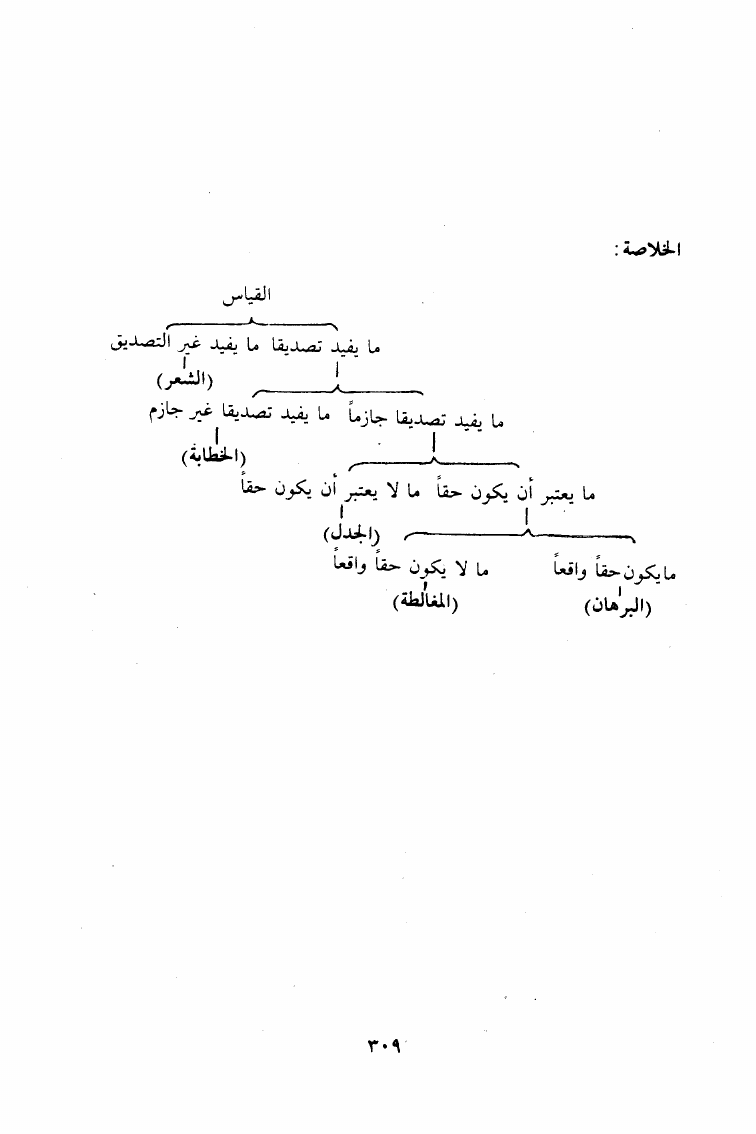 الخلاصة :
القياس
ما يفيد تصديقا ما يفيد غير التصديق
(الشعر)
ما يفيد تصديقا جازماً ما يفيد تصديقا غير جازم
(الخطابة)
ما يعتبر أن يكون حقاً ما لا يعتبر أن يكون حقاً
(الجدل)
ما يكون حقاً واقعاً ما لا يكون حقاً واقعاً
(البرهان) (المغالطة)
٣٠٩